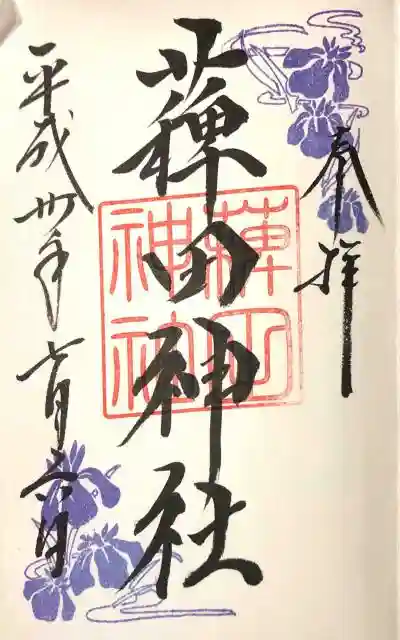 奉拝
薭田神社
薭田
神社
平成卅年七月六日